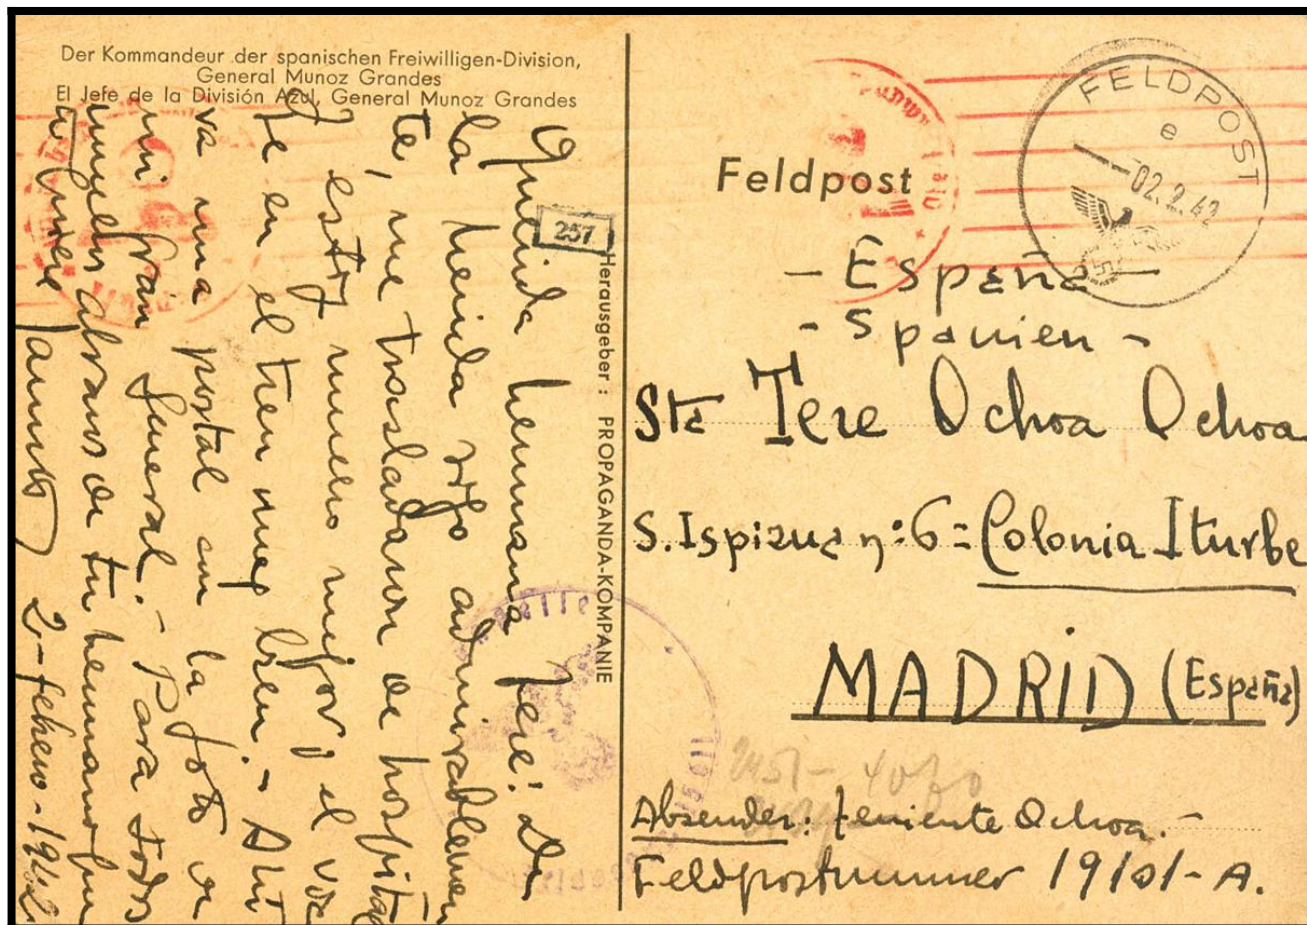 Der Kommandeur der spanischen Freiwilligen-Division,
General Munoz Grandes
El Jefe de la División Azul, General Munoz Grandes
Querida hermana Tere: De
la herida sigo admirablemen
te, me trasladaron de hospital
y estoy mucho mejor y el via
je en el tren muy bien.- Ahí
va una postal con la foto de
mi gran General.- Para todos
muchos abrazos de tu hermano que
te quiere Jaimito 2-febrero-1942
257
Herausgeber: PROPAGANDA-KOMPANIE
FELDPOST
e
02.2.42
Feldpost
- España -
- Spanien -
Sta Tere Ochoa Ochoa
S. Ispizua nº 6 = Colonia Iturbe
MADRID (España)
Absender: Teniente Ochoa.-
Feldpostnummer 19101-A.